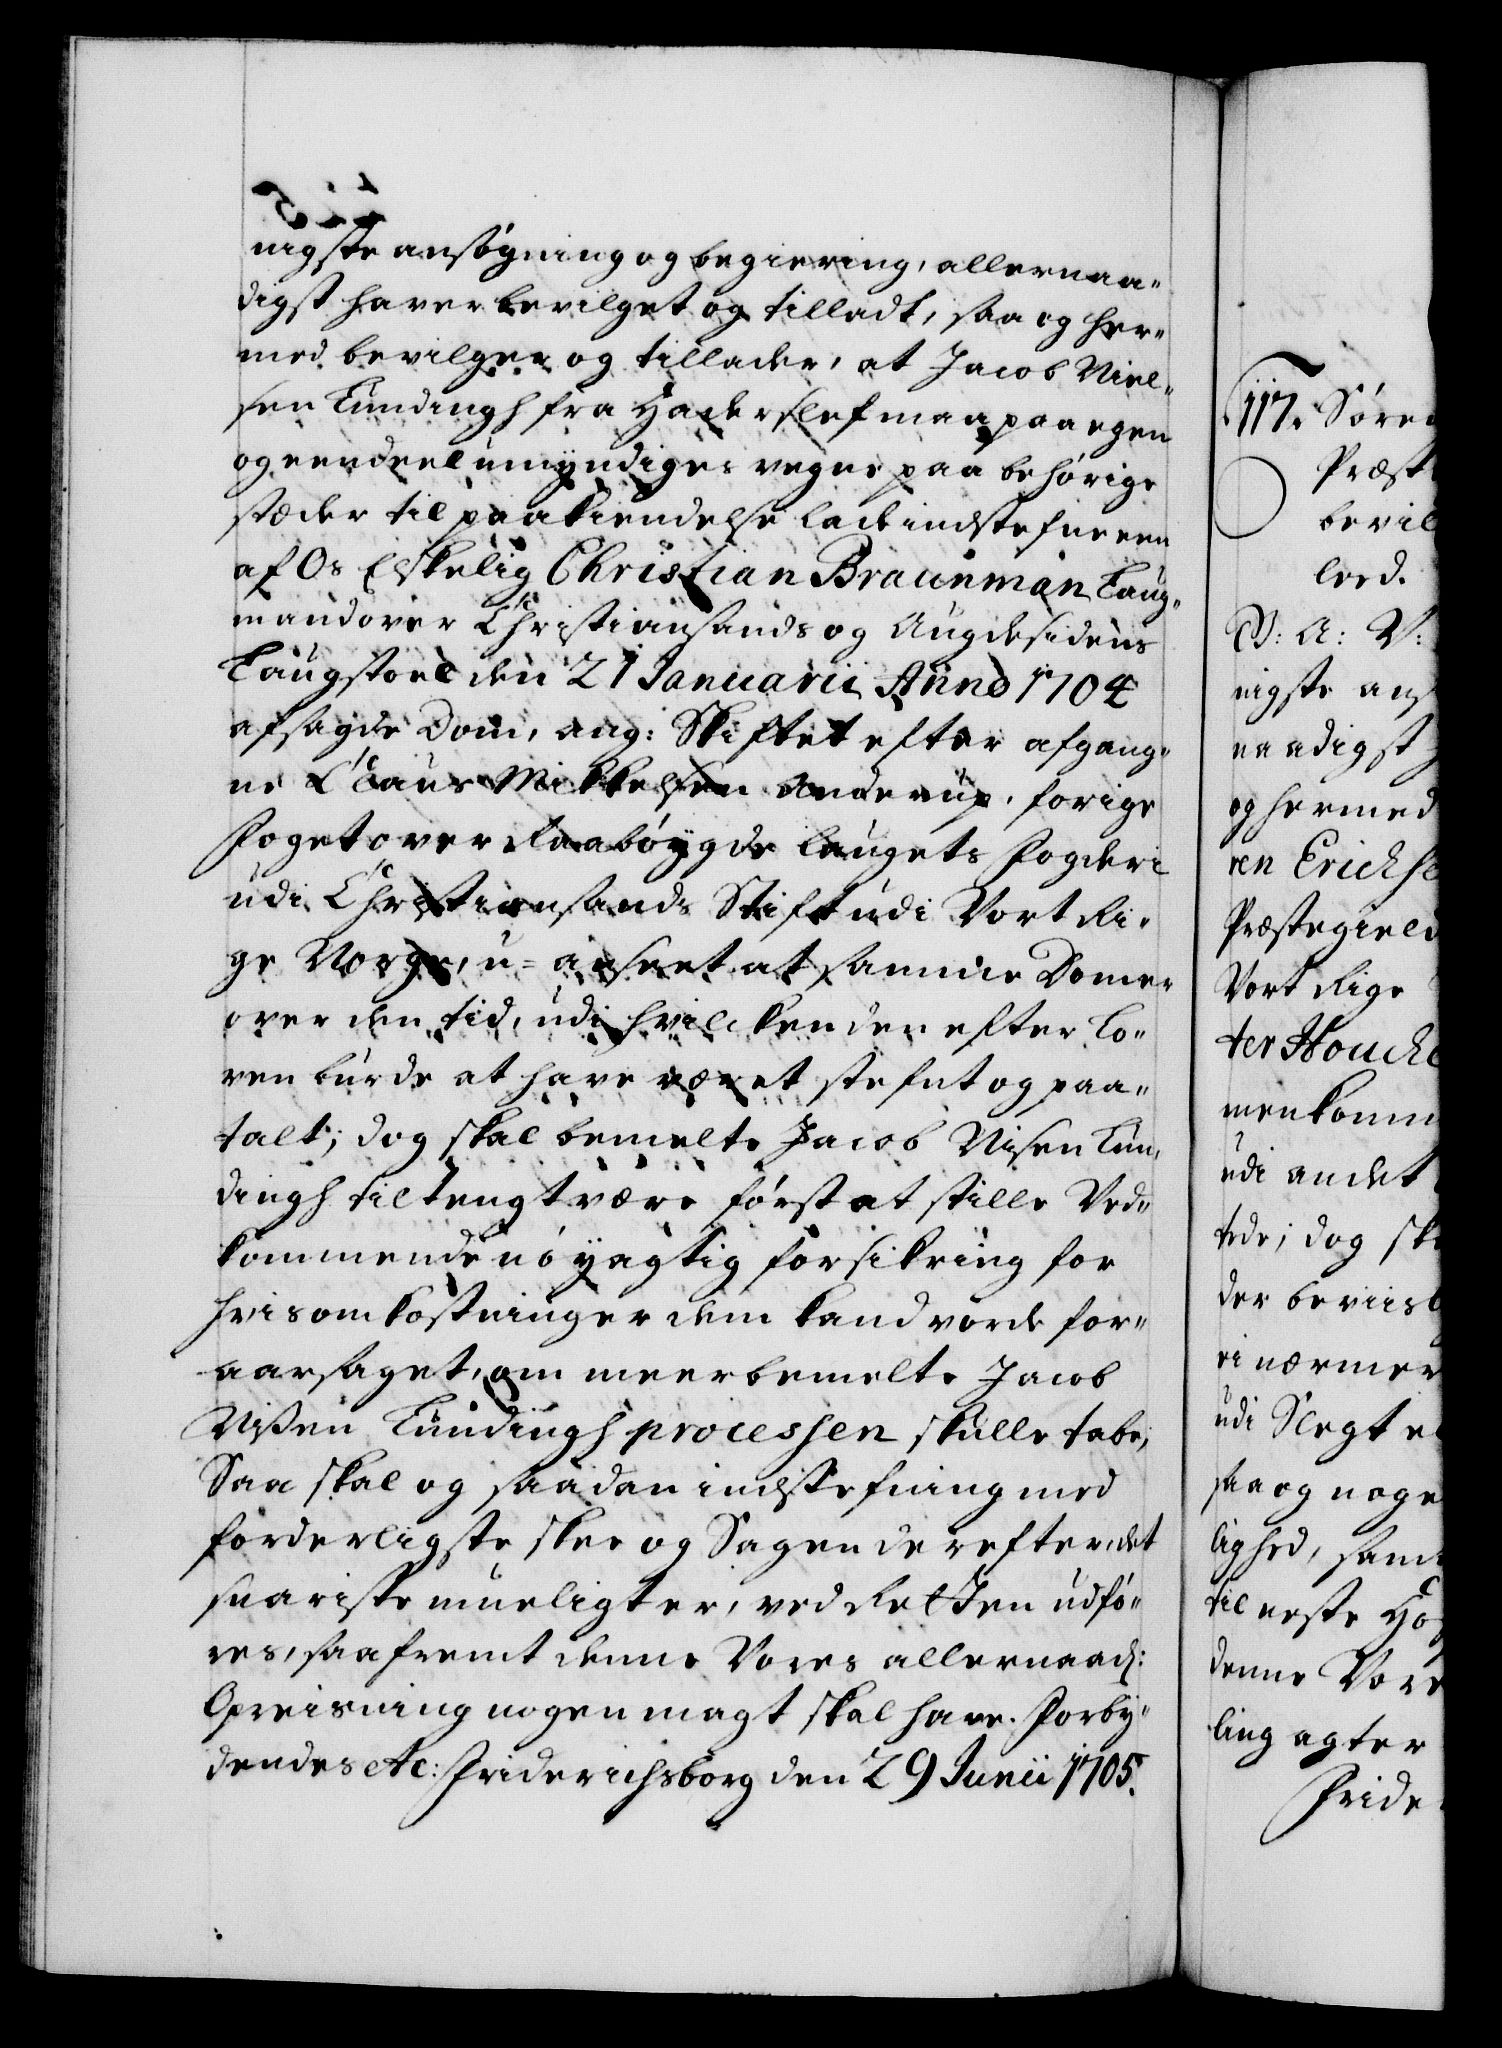 nigste ansøgning og begiering, allernaa-
digst haver bevilget og tilladt, saa og her-
med bevilger og tillader, at Jacob Niel-
sen Lundingh fra Haderslef maa paa egen
og eendeel umyndiges vegne paa behørige
stæder til paakiendelse lade indstefne een
af Os Elskelig Christian Braunman Laug-
mand over Christiansands og Augdesidens
Laugstoel den 21 Januarii Anno 1704
afsagde Dom, ang: Skiftet efter afgang-
ne Claus Mikkelsen Anderup, forige
Foget over Raabøygde laugets Fogderi
udi Christiansands Stift udi Vort Ri-
ge Norge, u-anseet at samme Dom er
over den tid, udi hvilcken den efter Lo-
ven burde at have været stefnt og paa-
talt; dog skal bemelte Jacob Nisen Lun-
dingh tiltengt være først at stille Ved-
kommende nøyagtig forsikring for
hvis omkostninger dem kand vorde for-
aarsaget, om meerbemelte Jacob
Nissen Lundingh processen skulle tabe;
Saa skal og saadan indstefning med
forderligste skee og Sagen derefter, det
snariste mueligt er, ved Retten udfø-
res, saafremt denne Vores allernaad:
Opreisning nogen magt skal have. Forby-
dendes etc: Friderichsborg den 29 Junii 1705.
117. Søren
Præst
bevil
leed.
V: A: V:
nigste ans
naadigst h
og hermed
ren Erichse
Præstegield
Vort Rige
ter Houcke
men komm
udi andet
tede; dog sk
der beviisl
ei nærmer
udi Slegt e
saa og noge
lighed, samt
til neste Ho
denne Vore
ling agter
Fride